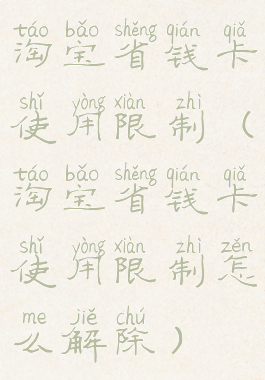 táo bǎo shěng qián qiǎ
淘宝省钱卡
shǐ yòng xiàn zhì
使用限制（
táo bǎo shěng qián qiǎ
淘宝省钱卡
shǐ yòng xiàn zhì zěn
使用限制怎
me jiě chú
么解除）